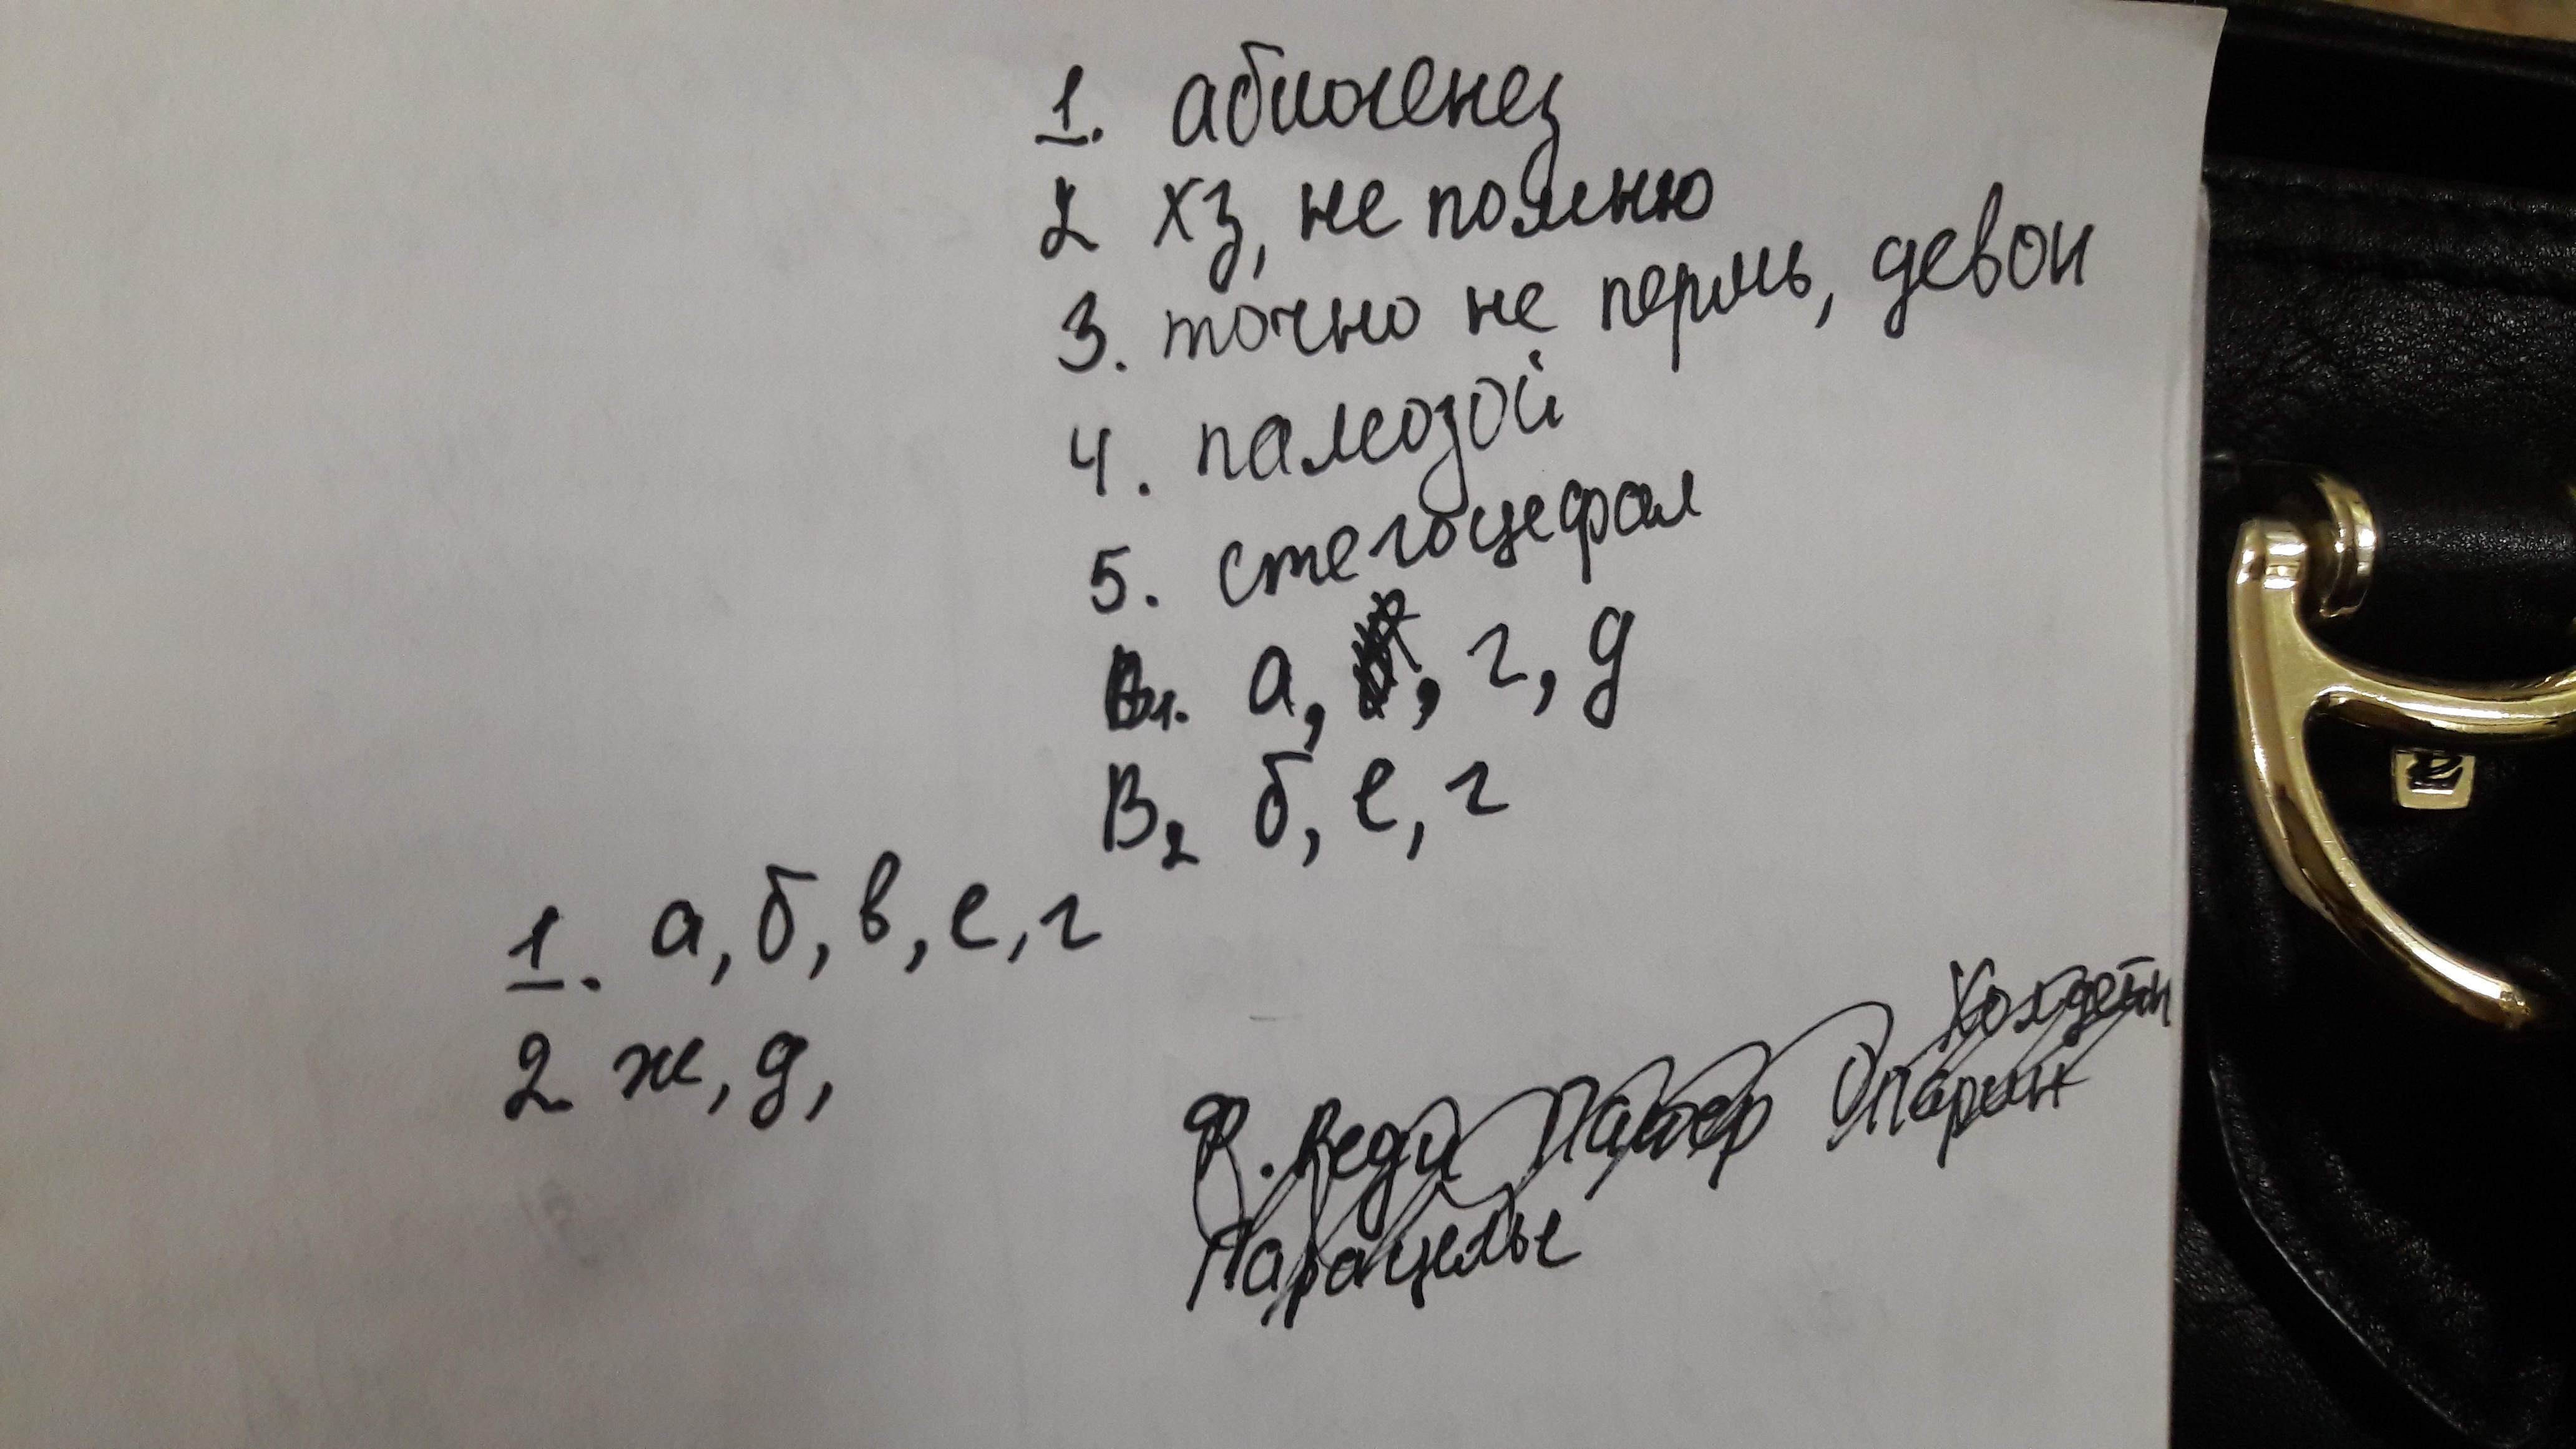 1. абиогенез
2 хз, не помню
3. точно не пермь, девон
4. палеозой
5. стегоцефал
В1. а, г, д
В2 б, е, г
1. а, б, в, е, г
2 ж, д,
Холдейн
Ф. Реди Пастер Опарин
Парацельс